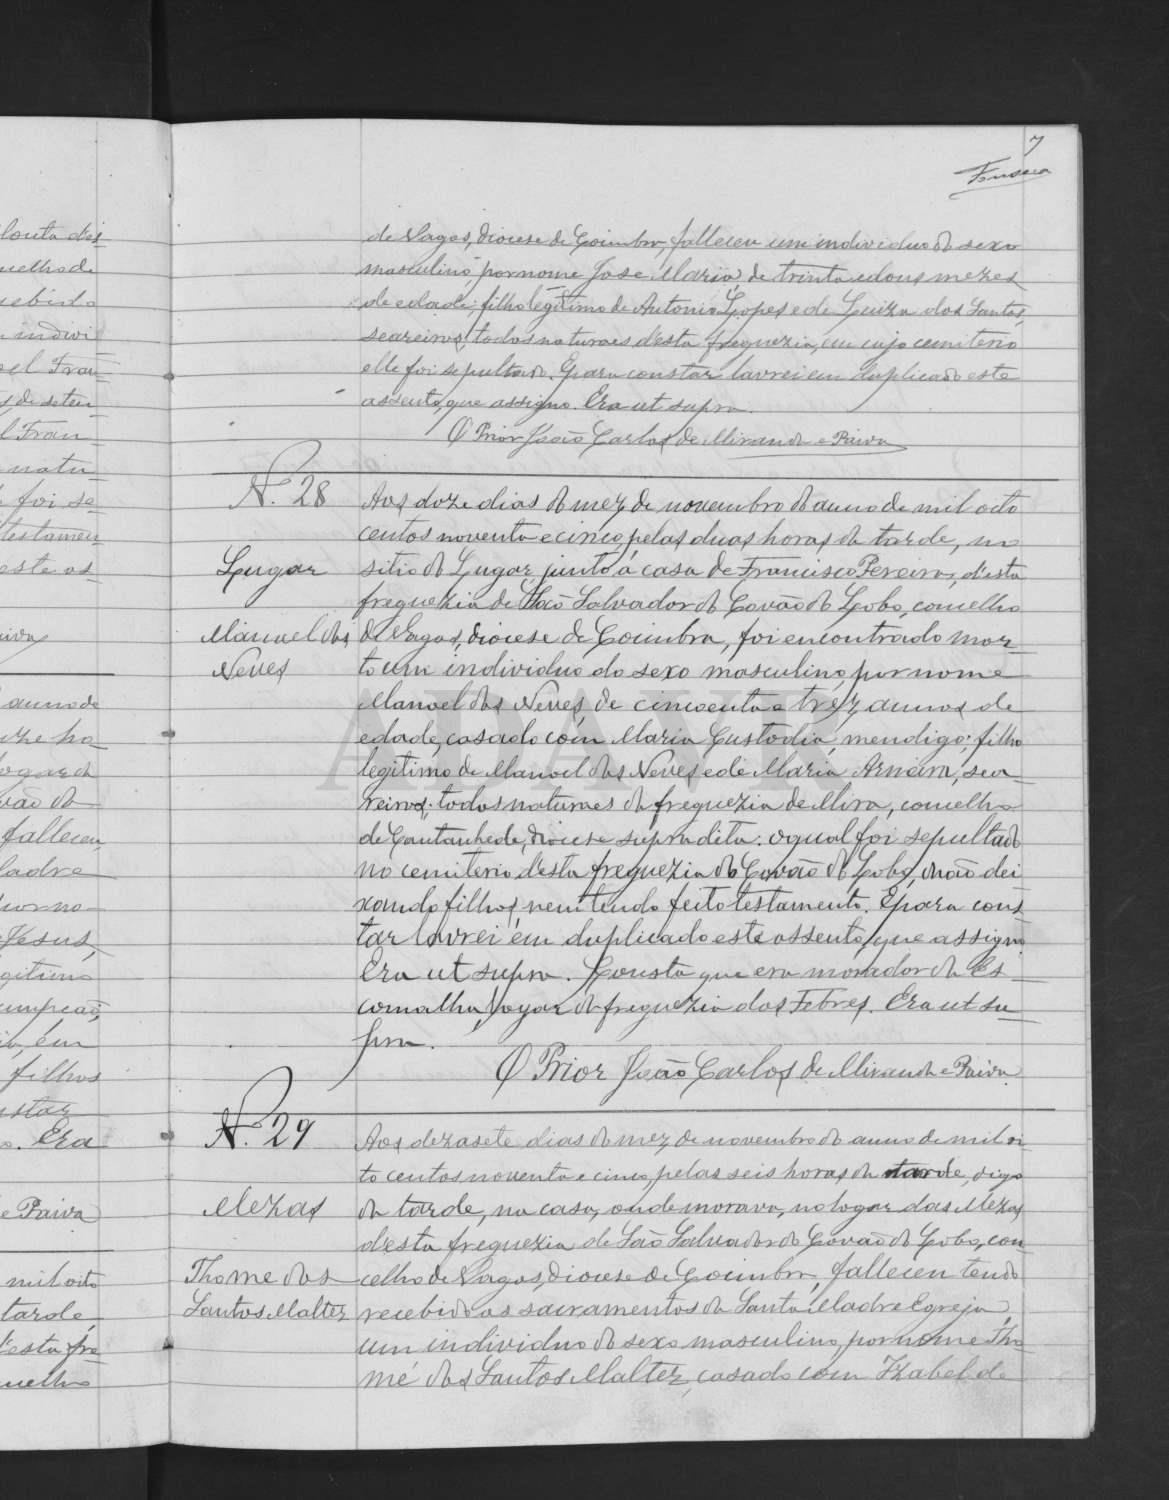 7
Fonseca
de Vagos, diocese de Coimbra, falleceu um individuo do sexo
masculino, por nome José Maria, de trinta e dous mezes
de edade, filho legitimo de Antonio Lopes e de Luiza dos Santos,
seareiros, todos naturaes d'esta freguezia, em cujo cemiterio
elle foi sepultado. E para constar lavrei em duplicado este
assento, que assigno. Era ut supra.
O Prior João Carlos de Miranda e Paiva
N. 28
Lugar
Manoel das
Neves
Aos doze dias do mez de novembro do anno de mil oito
centos noventa e cinco, pelas duas horas da tarde, no
sitio do Lugar, junto á casa de Francisco Pereira, d'esta
freguezia de São Salvador do Covão do Lobo, concelho
de Vagos, diocese de Coimbra, foi encontrado mor-
to um individuo do sexo masculino, por nome
Manoel das Neves, de cincoenta e trez annos de
edade, casado com Maria Custodia, mendigo; filho
legitimo de Manoel das Neves e de Maria, sea-
reiros; todos naturaes da freguezia de Mira, concelho
de Cantanhede, diocese supradita: o qual foi sepultado
no cemiterio d'esta freguezia do Covão do Lobo, não dei
xando filhos, nem tendo feito testamento. E para cons-
tar lavrei em duplicado este assento, que assigno
Era ut supra. Consta que era morador da Es-
cornalha, logar da freguezia dos Febres. Era ut su-
pra.
O Prior João Carlos de Miranda e Paiva
N. 29
Mezas
Thome dos
Santos Malter
Aos dezasete dias do mez de novembro do anno de mil oi-
to centos noventa e cinco, pelas seis horas da tarde, digo
da tarde, na casa, onde morava, no logar das Mezas,
d'esta freguezia de São Salvador do Covão do Lobo, con-
celho de Vagos, diocese de Coimbra, falleceu tendo
recebido os sacramentos da Santa Madre Egreja,
um individuo do sexo masculino, por nome Tho-
mé dos Santos Maltez, casado com Izabel de
louta d'es-
celho de
cebido
individ
el Fran-
s de seten-
l Fran-
natu-
foi se-
testamen-
este as-
aiva
anno de
ze ho-
logar da
vão do
falleceu,
adre
por no-
Jesus,
gitimo
umpção,
, em
filhos
star
. Era
e Paiva
mil oito
tarde,
d'esta fre-
celho
ADAVR